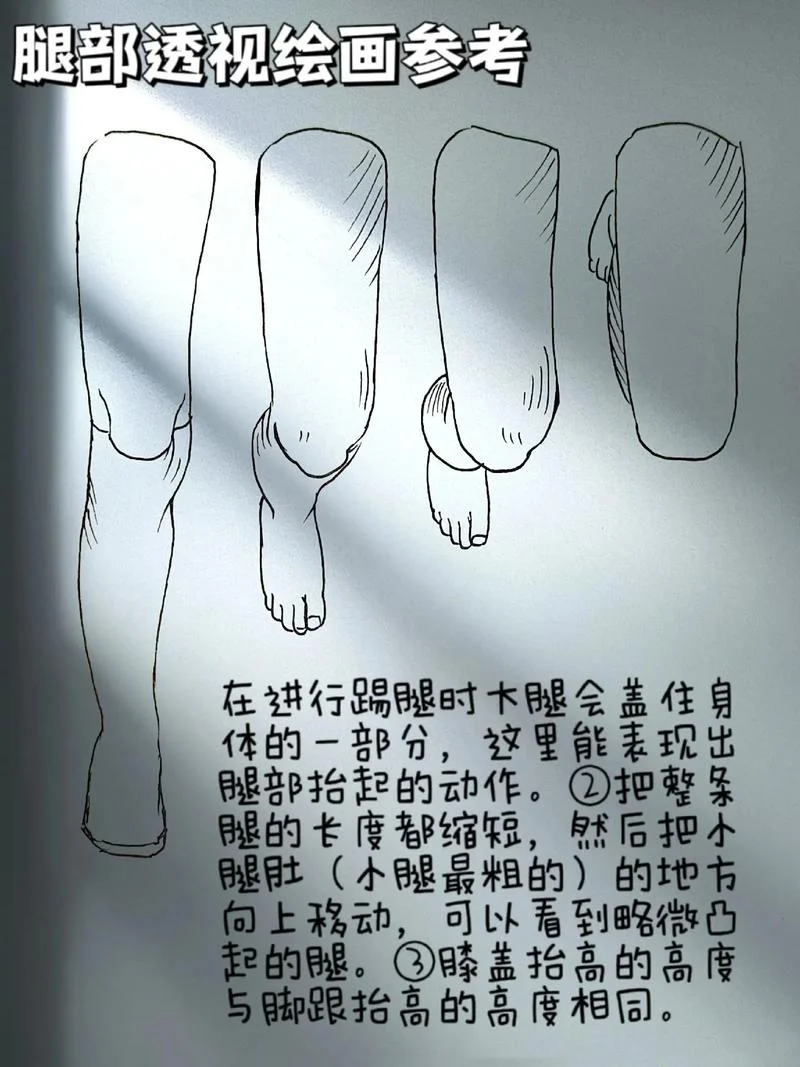 腿部透视绘画参考
在进行踢腿时大腿会盖住身
体的一部分，这里能表现出
腿部抬起的动作。②把整条
腿的长度都缩短，然后把小
腿肚（小腿最粗的）的地方
向上移动，可以看到略微凸
起的腿。③膝盖抬高的高度
与脚跟抬高的高度相同。